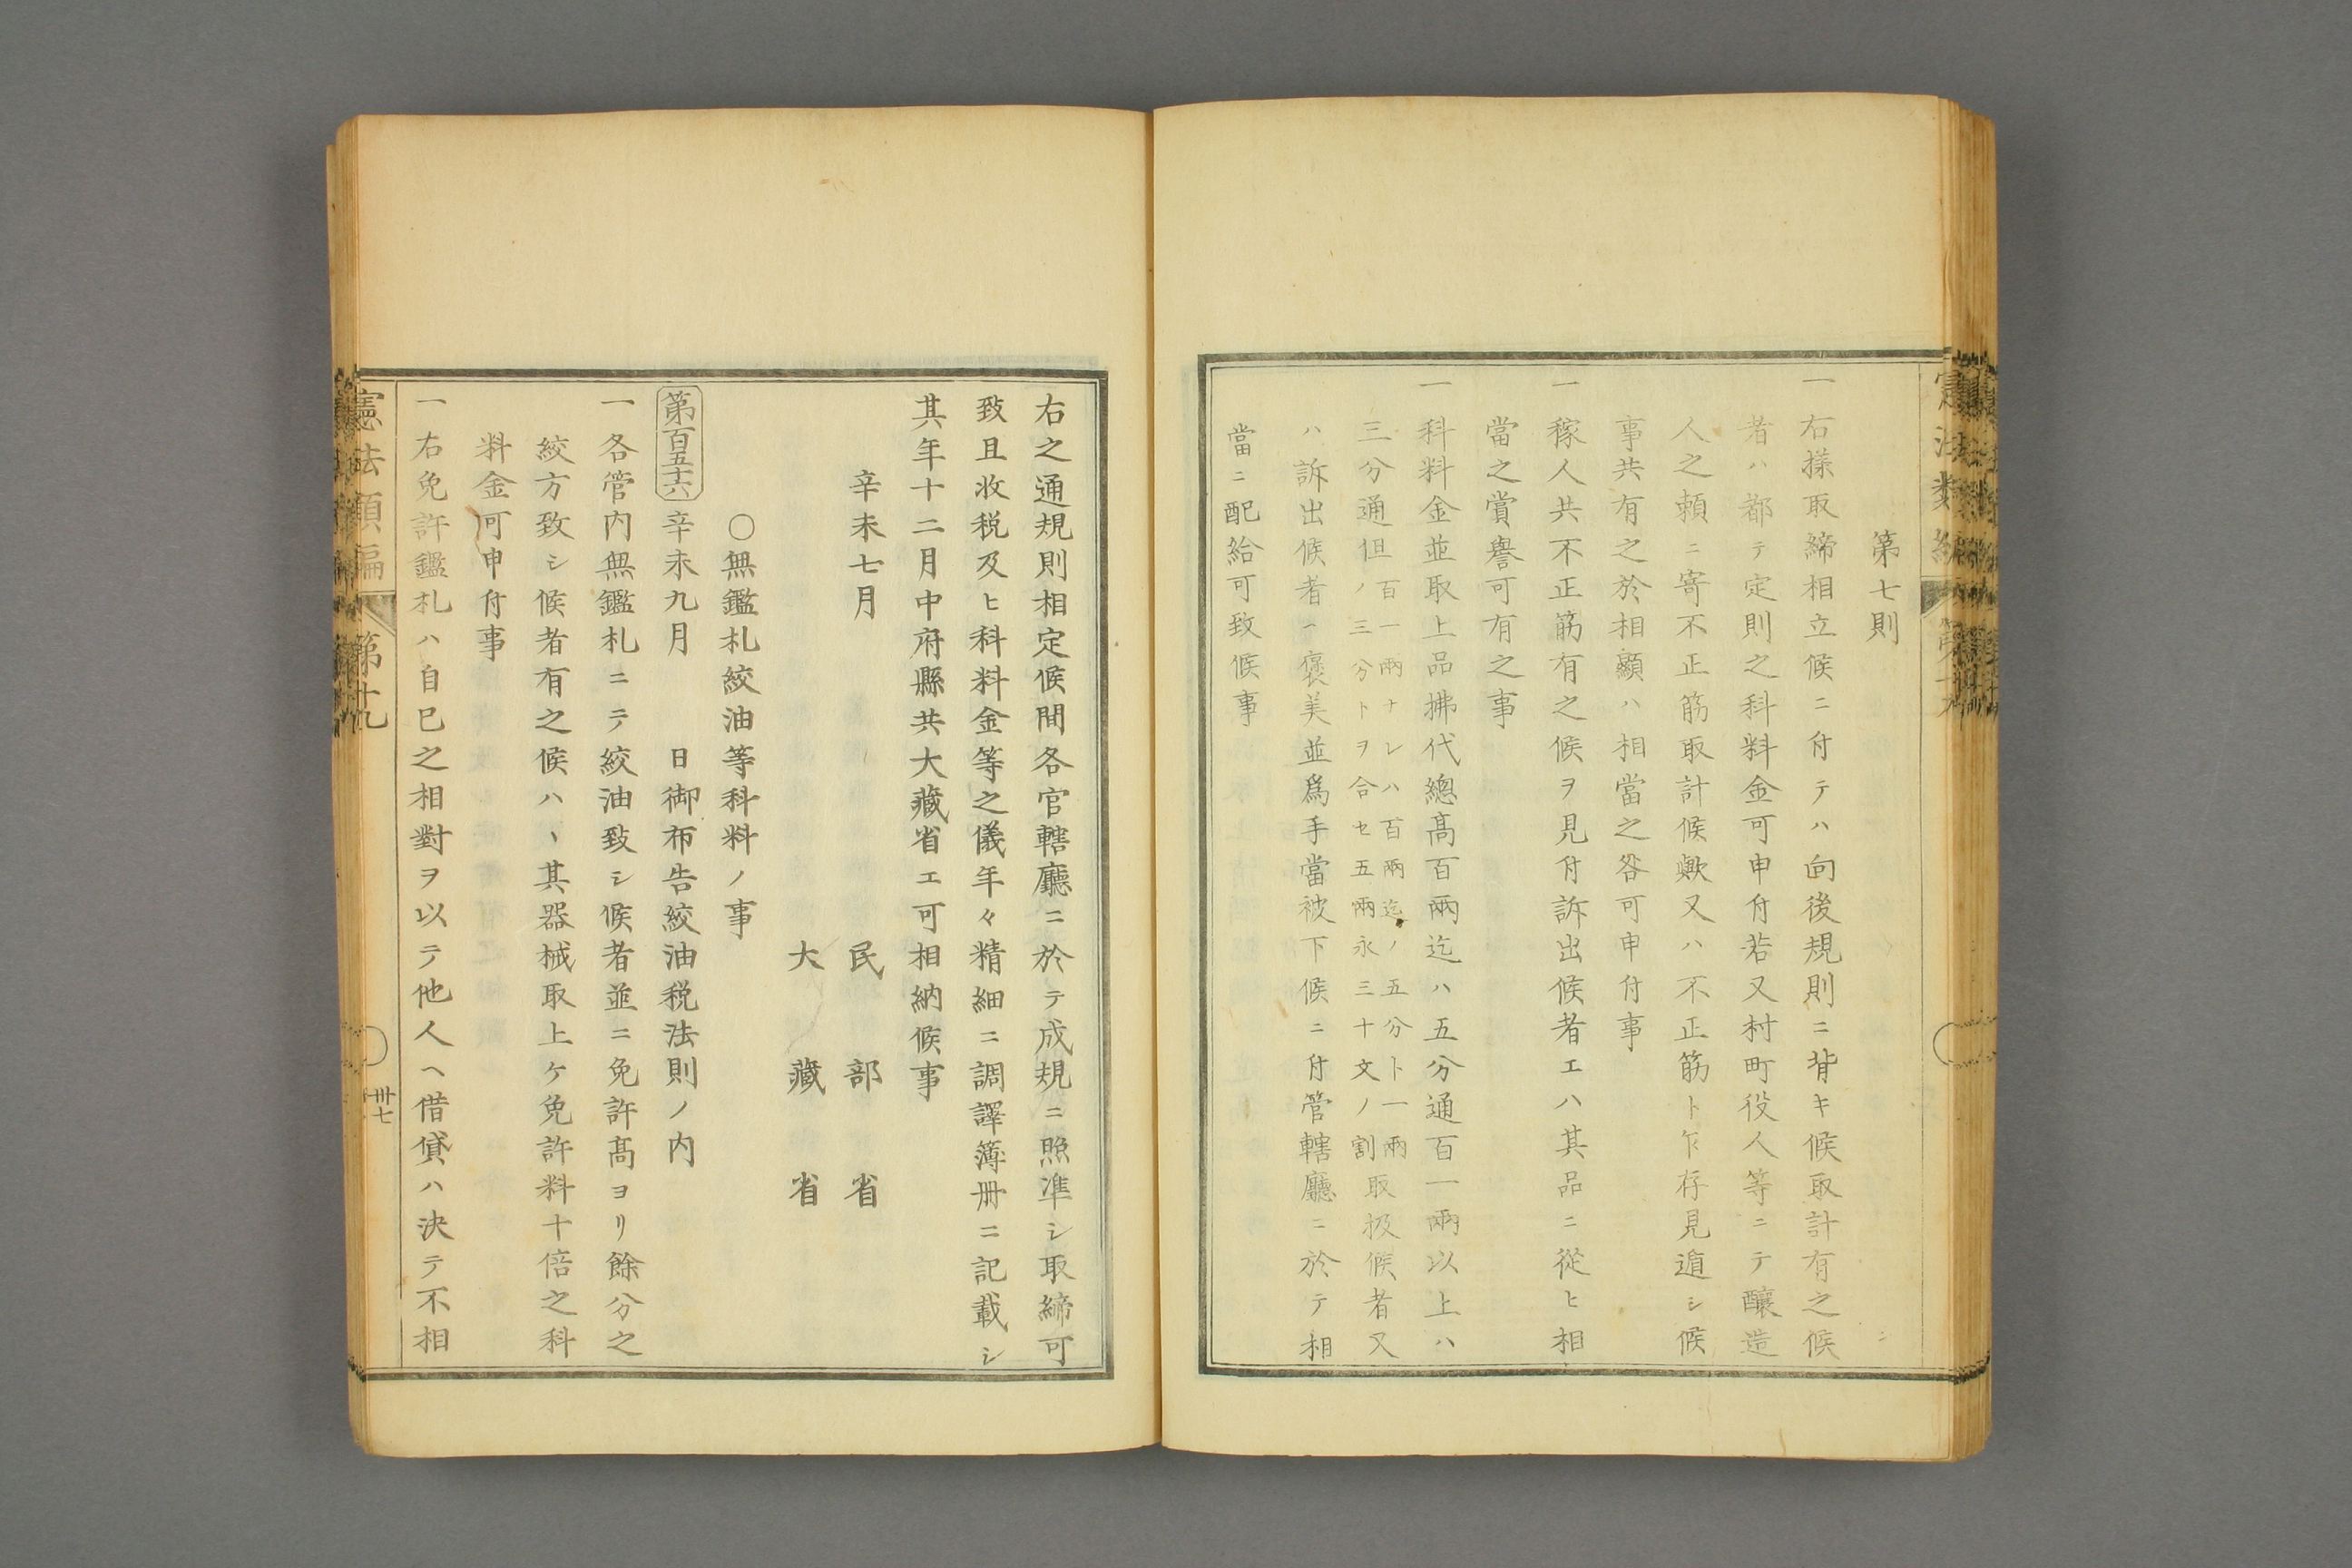 第七則
一右樣取締相立候ニ付テハ向後規則ニ背キ候取計有之候
者ハ都テ定則之科料金可申付若又村町役人等ニテ釀造
人之頼ニ寄不正筋取計候歟又ハ不正筋ト乍存見遁シ候
事共有之於相顯ハ相當之咎可申付事
一稼人共不正筋有之候ヲ見付訴出候者エハ其品ニ從ヒ相
當之賞譽可有之事
一科料金並取上品拂代總髙百兩迄ハ五分通百一兩以上ハ
三分通但百一兩ナレハ百兩迄ノ五分ト一兩ノ三分トヲ合セ五兩永三十文ノ割取扱候者又
ハ訴出候者ヘ褒美並爲手當被下候ニ付管轄廳ニ於テ相
當ニ配給可致候事
右之通規則相定候間各官轄廳ニ於テ成規ニ照準シ取締可
致且收税及ヒ科料金等之儀年々精細ニ調譯簿冊ニ記載シ
其年十二月中府縣共大藏省エ可相納候事
辛未七月 民部省
大藏省
〇無鑑札絞油等科料ノ事
第百五十六 辛未九月 日御布告絞油税法則ノ内
一各管内無鑑札ニテ絞油致シ候者並ニ免許髙ヨリ餘分之
絞方致シ候者有之候ハヽ其器械取上ケ免許料十倍之科
料金可申付事
一右免許鑑札ハ自己之相對ヲ以テ他人ヘ借貸ハ決テ不相
憲法類編 第十九
卅七